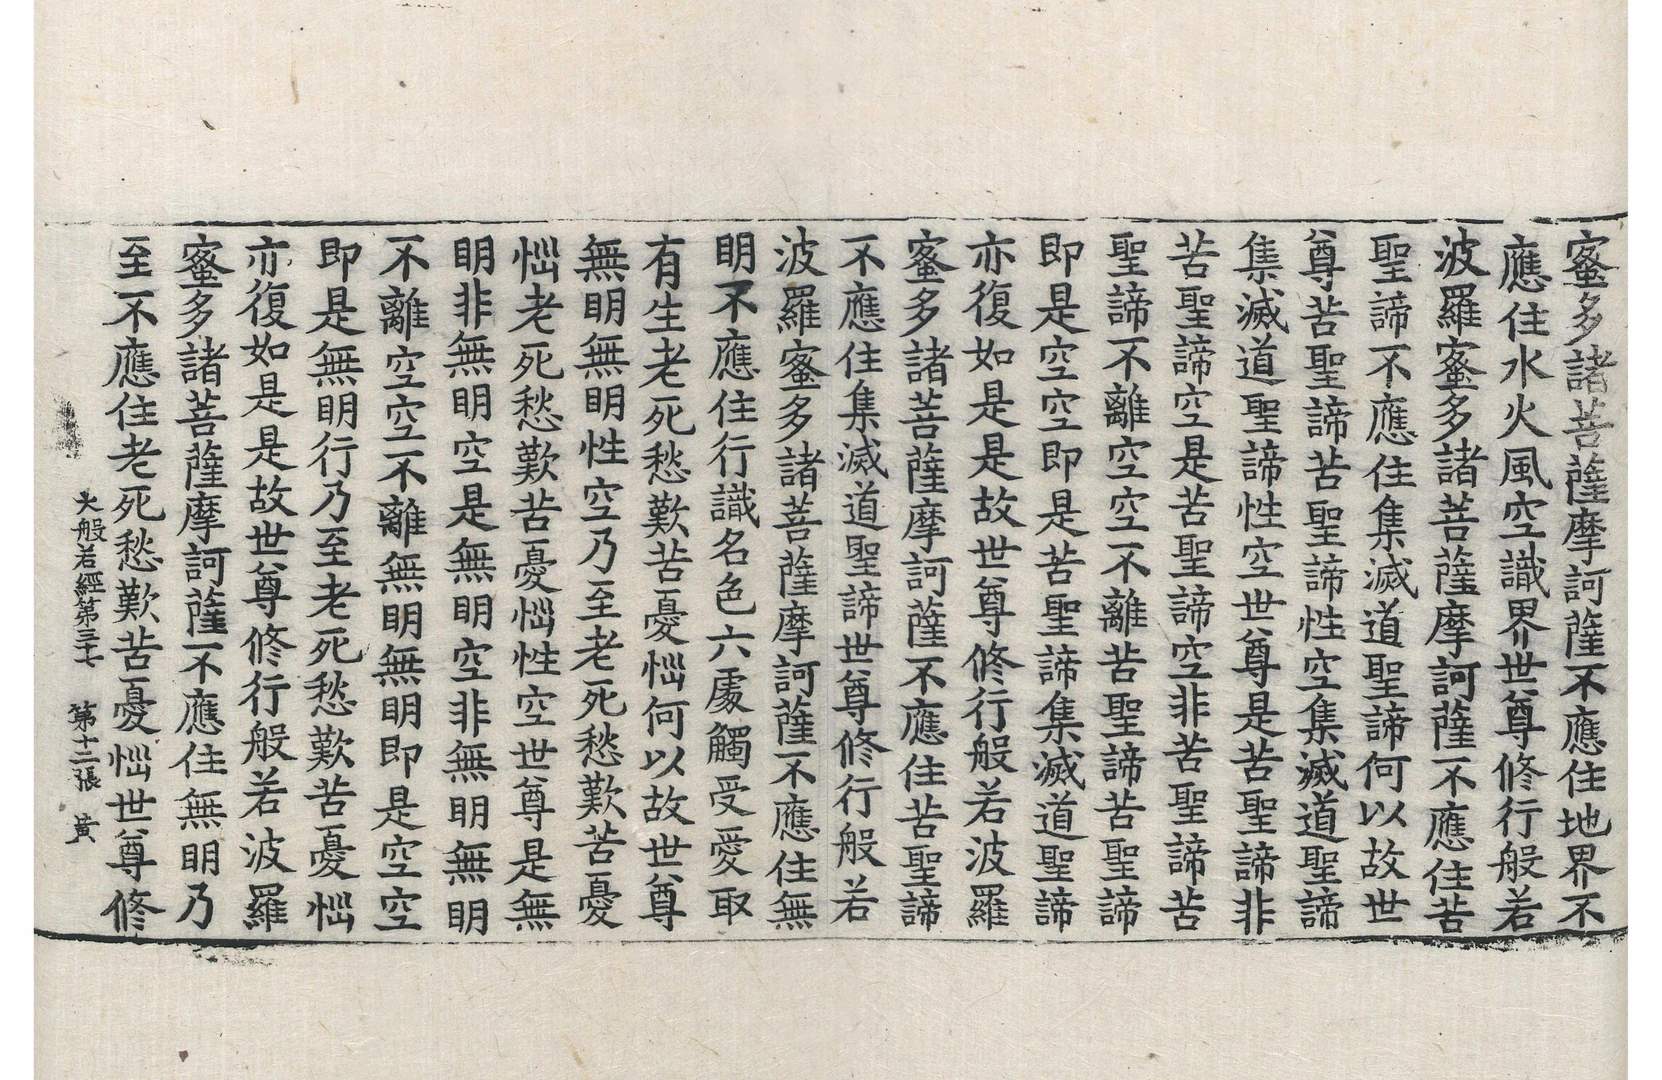 蜜多諸菩薩摩訶薩不應住地界不
應住水火風空識界世尊修行般若
波羅蜜多諸菩薩摩訶薩不應住苦
聖諦不應住集滅道聖諦何以故世
尊苦聖諦苦聖諦性空集滅道聖諦
集滅道聖諦性空世尊是苦聖諦非
苦聖諦空是苦聖諦空非苦聖諦苦
聖諦不離空空不離苦聖諦苦聖諦
即是空空即是苦聖諦集滅道聖諦
亦復如是是故世尊修行般若波羅
蜜多諸菩薩摩訶薩不應住苦聖諦
不應住集滅道聖諦世尊修行般若
波羅蜜多諸菩薩摩訶薩不應住無
明不應住行識名色六處觸受愛取
有生老死愁歎苦憂惱何以故世尊
無明無明性空乃至老死愁歎苦憂
惱老死愁歎苦憂惱性空世尊是無
明非無明空是無明空非無明無明
不離空空不離無明無明即是空空
即是無明行乃至老死愁歎苦憂惱
亦復如是是故世尊修行般若波羅
蜜多諸菩薩摩訶薩不應住無明乃
至不應住老死愁歎苦憂惱世尊修
大般若經第三十七 第十二張 黃